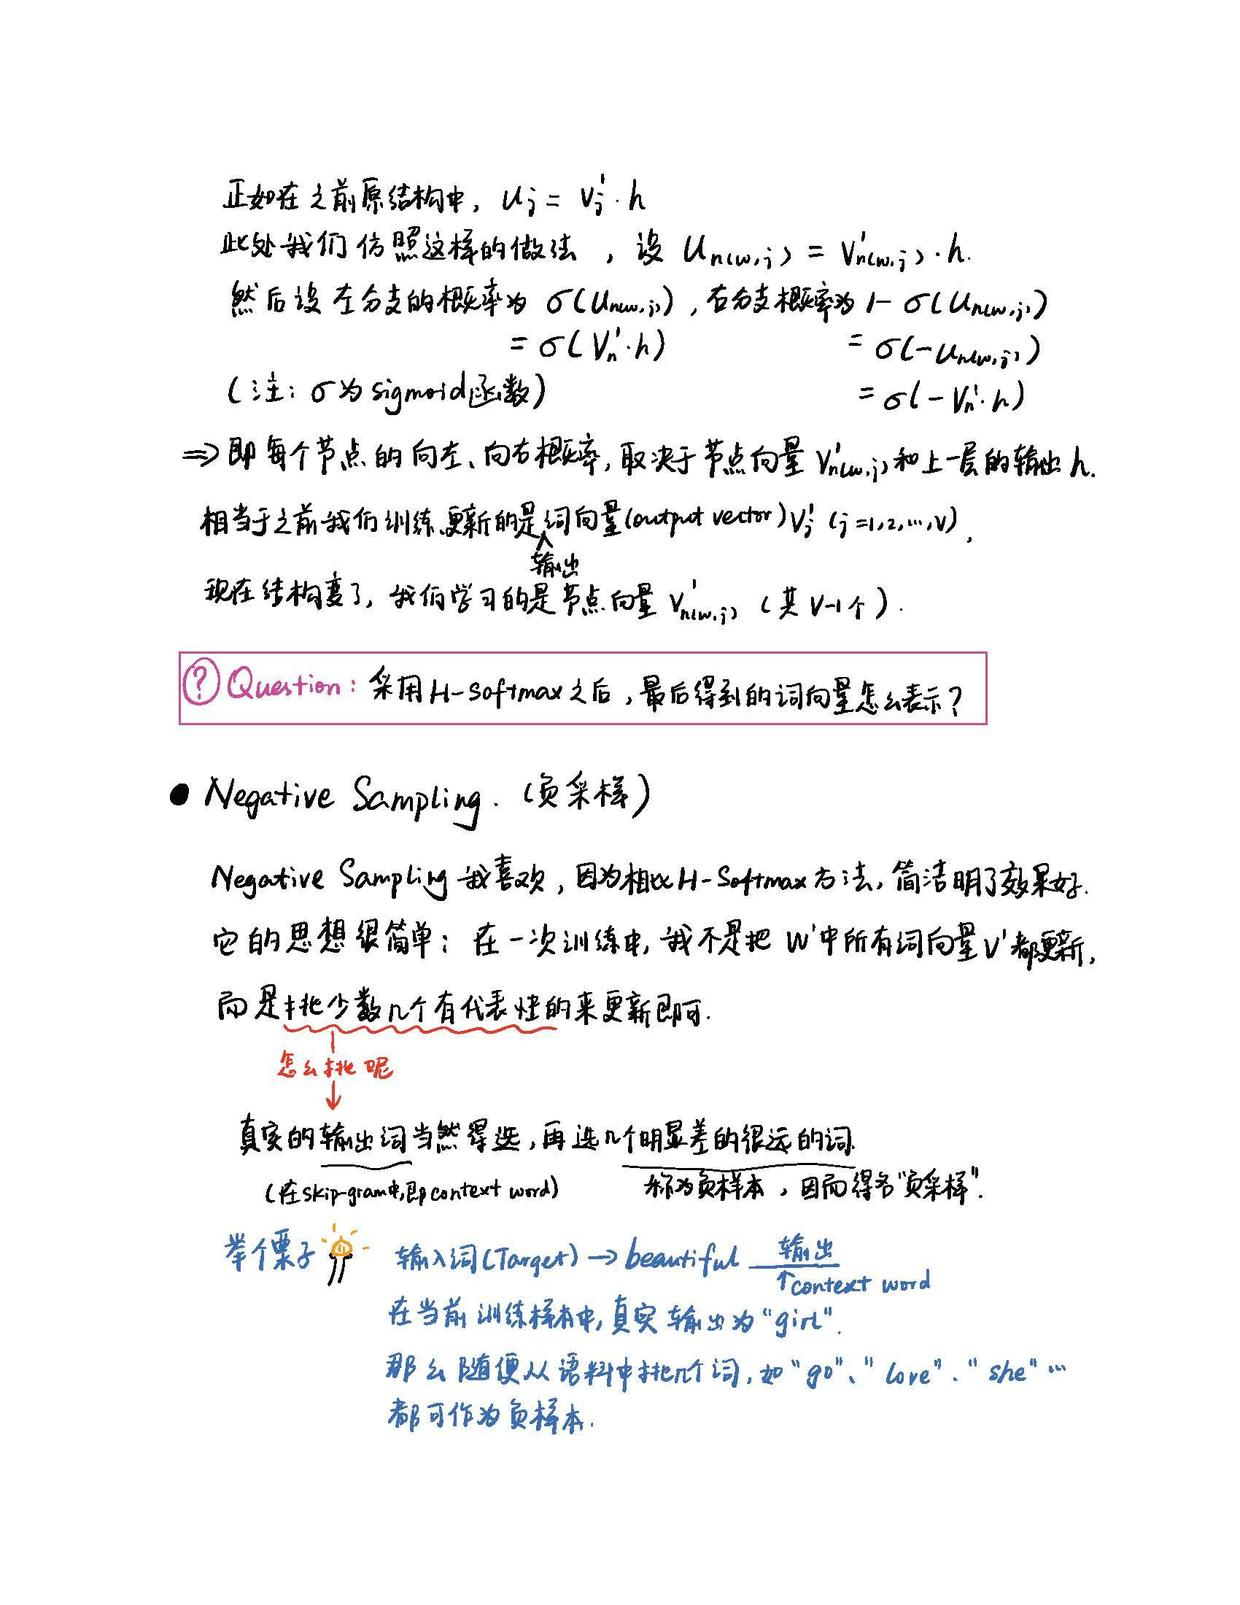 正如在之前原结构中，u_j = v'_j · h
此处我们仿照这样的做法，设 u_n(w,j) = v'_n(w,j) · h.
然后设左分支的概率为 σ(u_n(w,j))，右分支概率为 1 - σ(u_n(w,j))
= σ(v'_n · h) = σ(-u_n(w,j))
(注：σ为sigmoid函数) = σ(-v'_n · h)
⇒ 即每个节点的向左、向右概率，取决于节点向量 v'_n(w,j) 和上一层的输出 h.
相当于之前我们训练更新的是输出词向量(output vector) v'_j (j=1,2,…,V)，
现在结构变了，我们学习的是节点向量 v'_n(w,j) (共 V-1个).
? Question: 采用H-Softmax之后，最后得到的词向量怎么表示？
● Negative Sampling. (负采样)
Negative Sampling 我喜欢，因为相比H-Softmax方法，简洁明了效果好.
它的思想很简单：在一次训练中，我不是把 W'中所有词向量V'都更新，
而是挑少数几个有代表性的来更新即可.
怎么挑呢
真实的输出词当然得选，再选几个明显差的很远的词.
(在skip-gram中,即context word) 称为负样本，因而得名"负采样".
举个栗子 输入词(Target) → beautiful 输出
↑context word
在当前训练样本中,真实输出为"girl".
那么随便从语料中挑几个词，如"go"、"love"、"she"…
都可作为负样本.